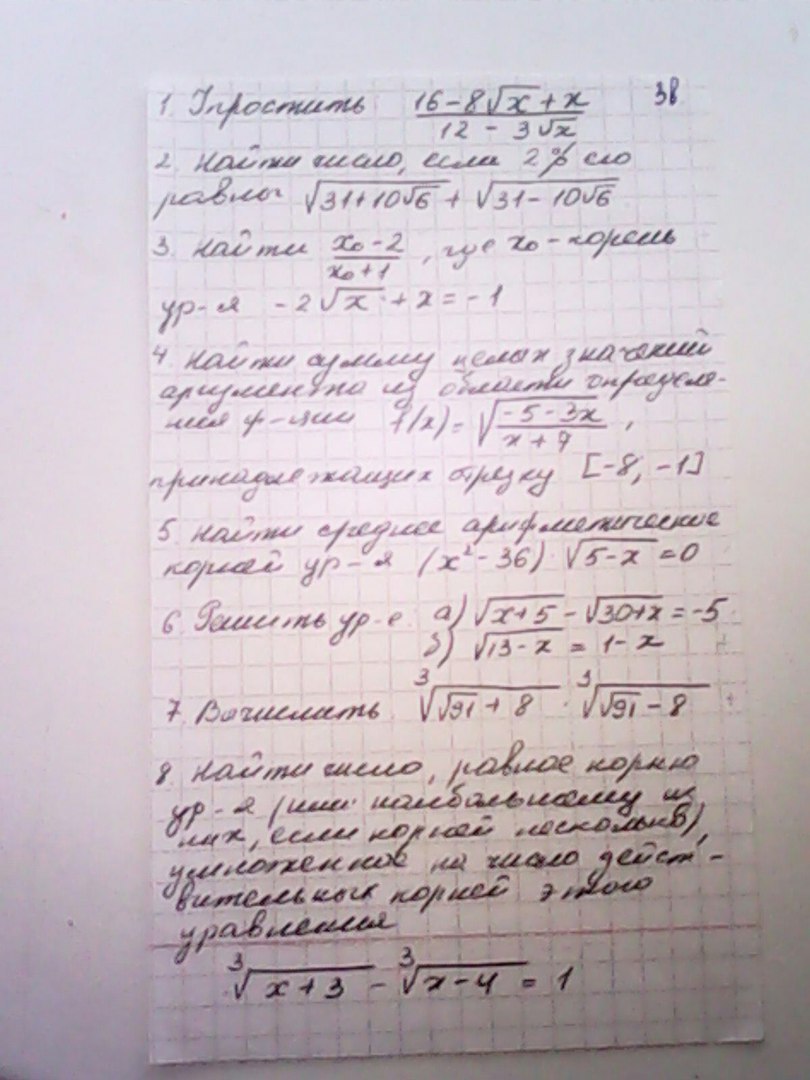 38
1. Упростить (16-8√x+x)/(12-3√x)
2. Найти число, если 2% его
равны √(31+10√6) + √(31-10√6)
3. Найти (x₀-2)/(x₀+1), где x₀ - корень
ур-я -2√x + x = -1
4. Найти сумму целых значений
аргумента из области определе-
ния ф-ции f(x) = √((-5-3x)/(x+7)),
принадлежащих отрезку [-8; -1]
5. Найти среднее арифметическое
корней ур-я (x²-36)·√(5-x) = 0
6. Решить ур-е. а) √(x+5) - √(30+x) = -5
б) √(13-x) = 1-x
7. Вычислить ∛(√91+8) · ∛(√91-8)
8. Найти число, равное корню
ур-я (или наибольшему из
них, если корней несколько),
умноженное на число дейст-
вительных корней этого
уравнения
∛(x+3) - ∛(x-4) = 1